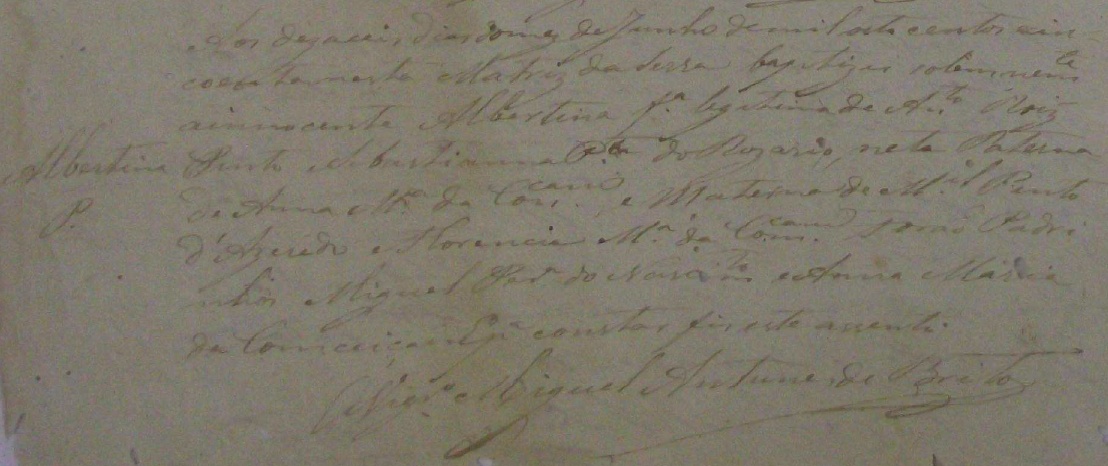 Aos dezaceis dias do mez de Junho de mil oito centos cin-
coenta nesta Matriz da Serra baptizei solemnem.te
a innocente Albertina f.a legitima de An.to Roiz
Albertina Pinto e Sebastianna do Rozario, neta Paterna
P. de Anna M.a da Com.caund e Materna de M.el Pinto
d'Azeredo e Florencia M.a da Com.caund forão Padri
nhos Miguel Per.a do Nascim.to e Anna Maria
da Conceiçam E p.a constar fis este assento.
O Vig.ro Miguel Antunes de Brito